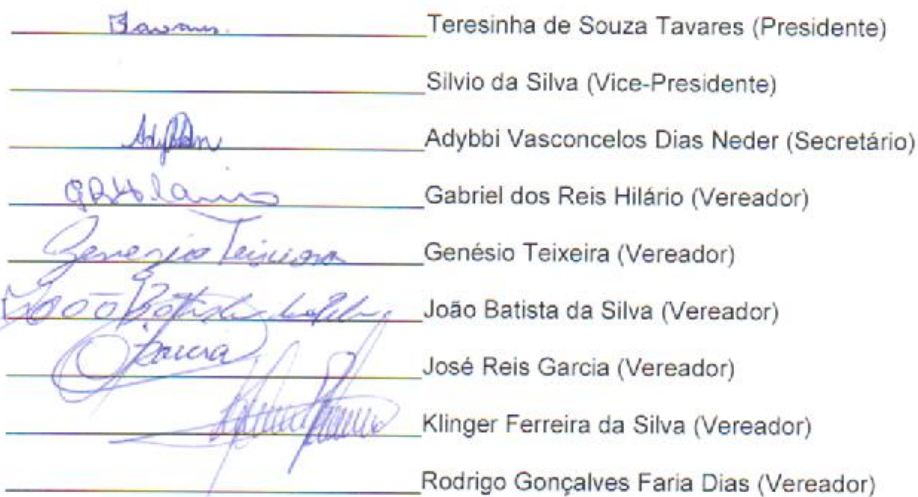 Tavares. Teresinha de Souza Tavares (Presidente)
Silvio da Silva (Vice-Presidente)
Adybbi Vasconcelos Dias Neder (Secretário)
GRHilario Gabriel dos Reis Hilário (Vereador)
Genesio Teixeira Genésio Teixeira (Vereador)
João Batista da Silva João Batista da Silva (Vereador)
Garcia José Reis Garcia (Vereador)
Klinger Ferreira da Silva (Vereador)
Rodrigo Gonçalves Faria Dias (Vereador)